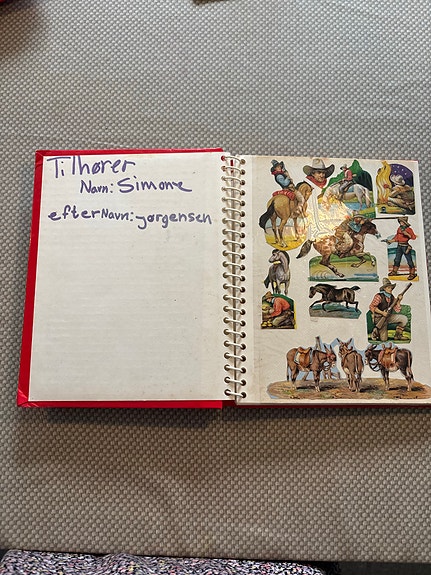 Tilhører
Navn: Simone
efterNavn: jørgensen